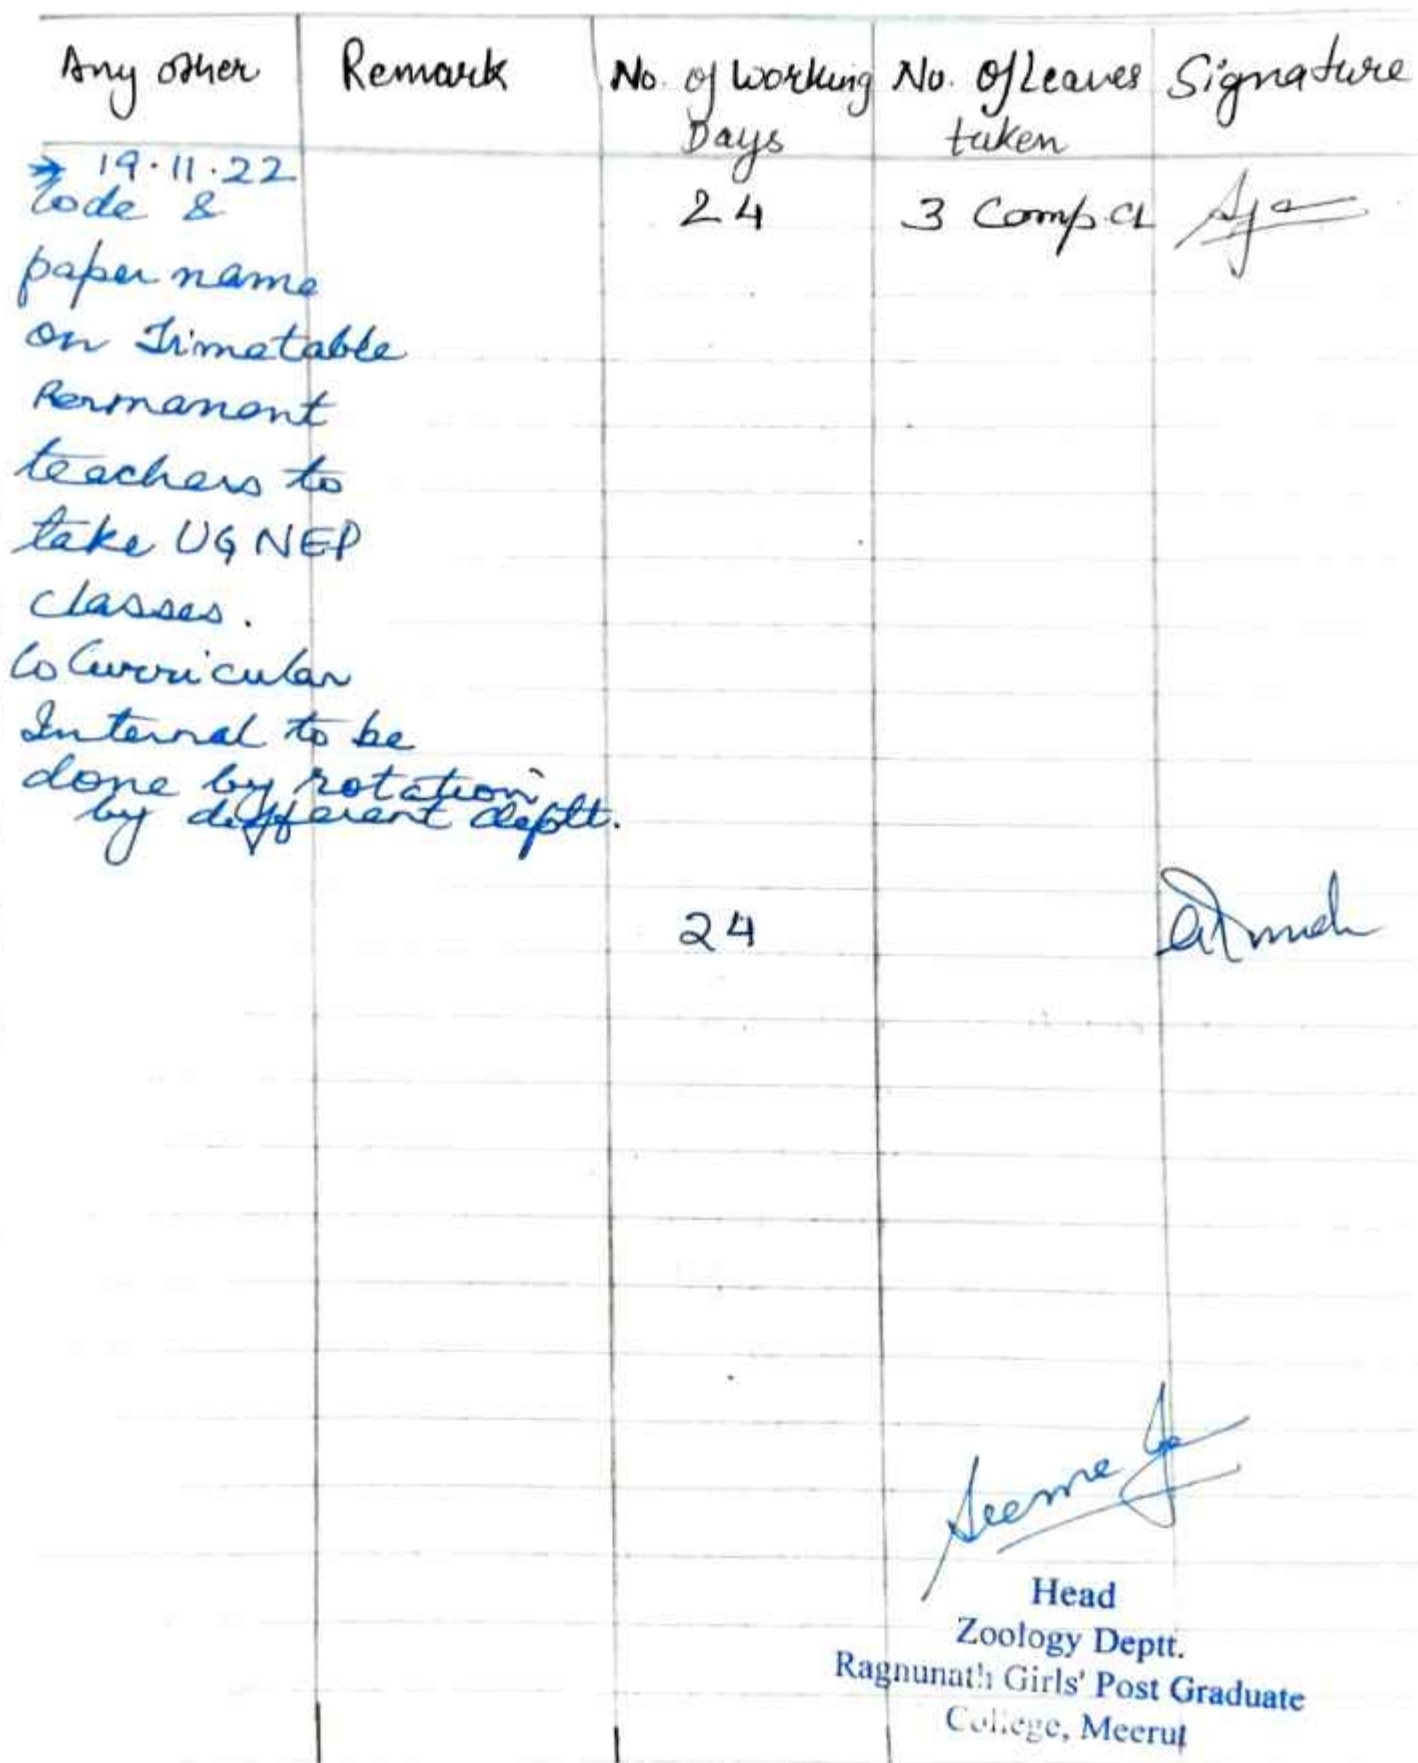 Any other Remark No. of Working Days No. of Leaves taken Signature
→ 19.11.22
Code &
paper name
on Timetable
Permanent
teachers to
take UG NEP
classes.
CoCurricular
Internal to be
done by rotation
by different deptt.
24 3 Comp. CL
24
Seema
Head
Zoology Deptt.
Ragnunath Girls' Post Graduate
College, Meerut